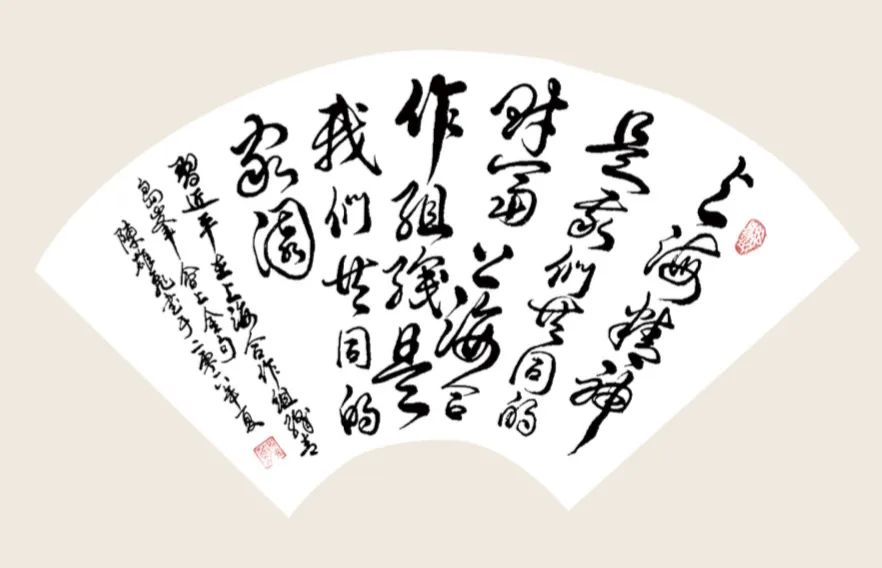 上海精神
是我们共同的
财富上海合
作组织是
我们共同的
家园
習近平在上海合作组織青
島峯會上金句
陳雄飛书于二零一八年夏